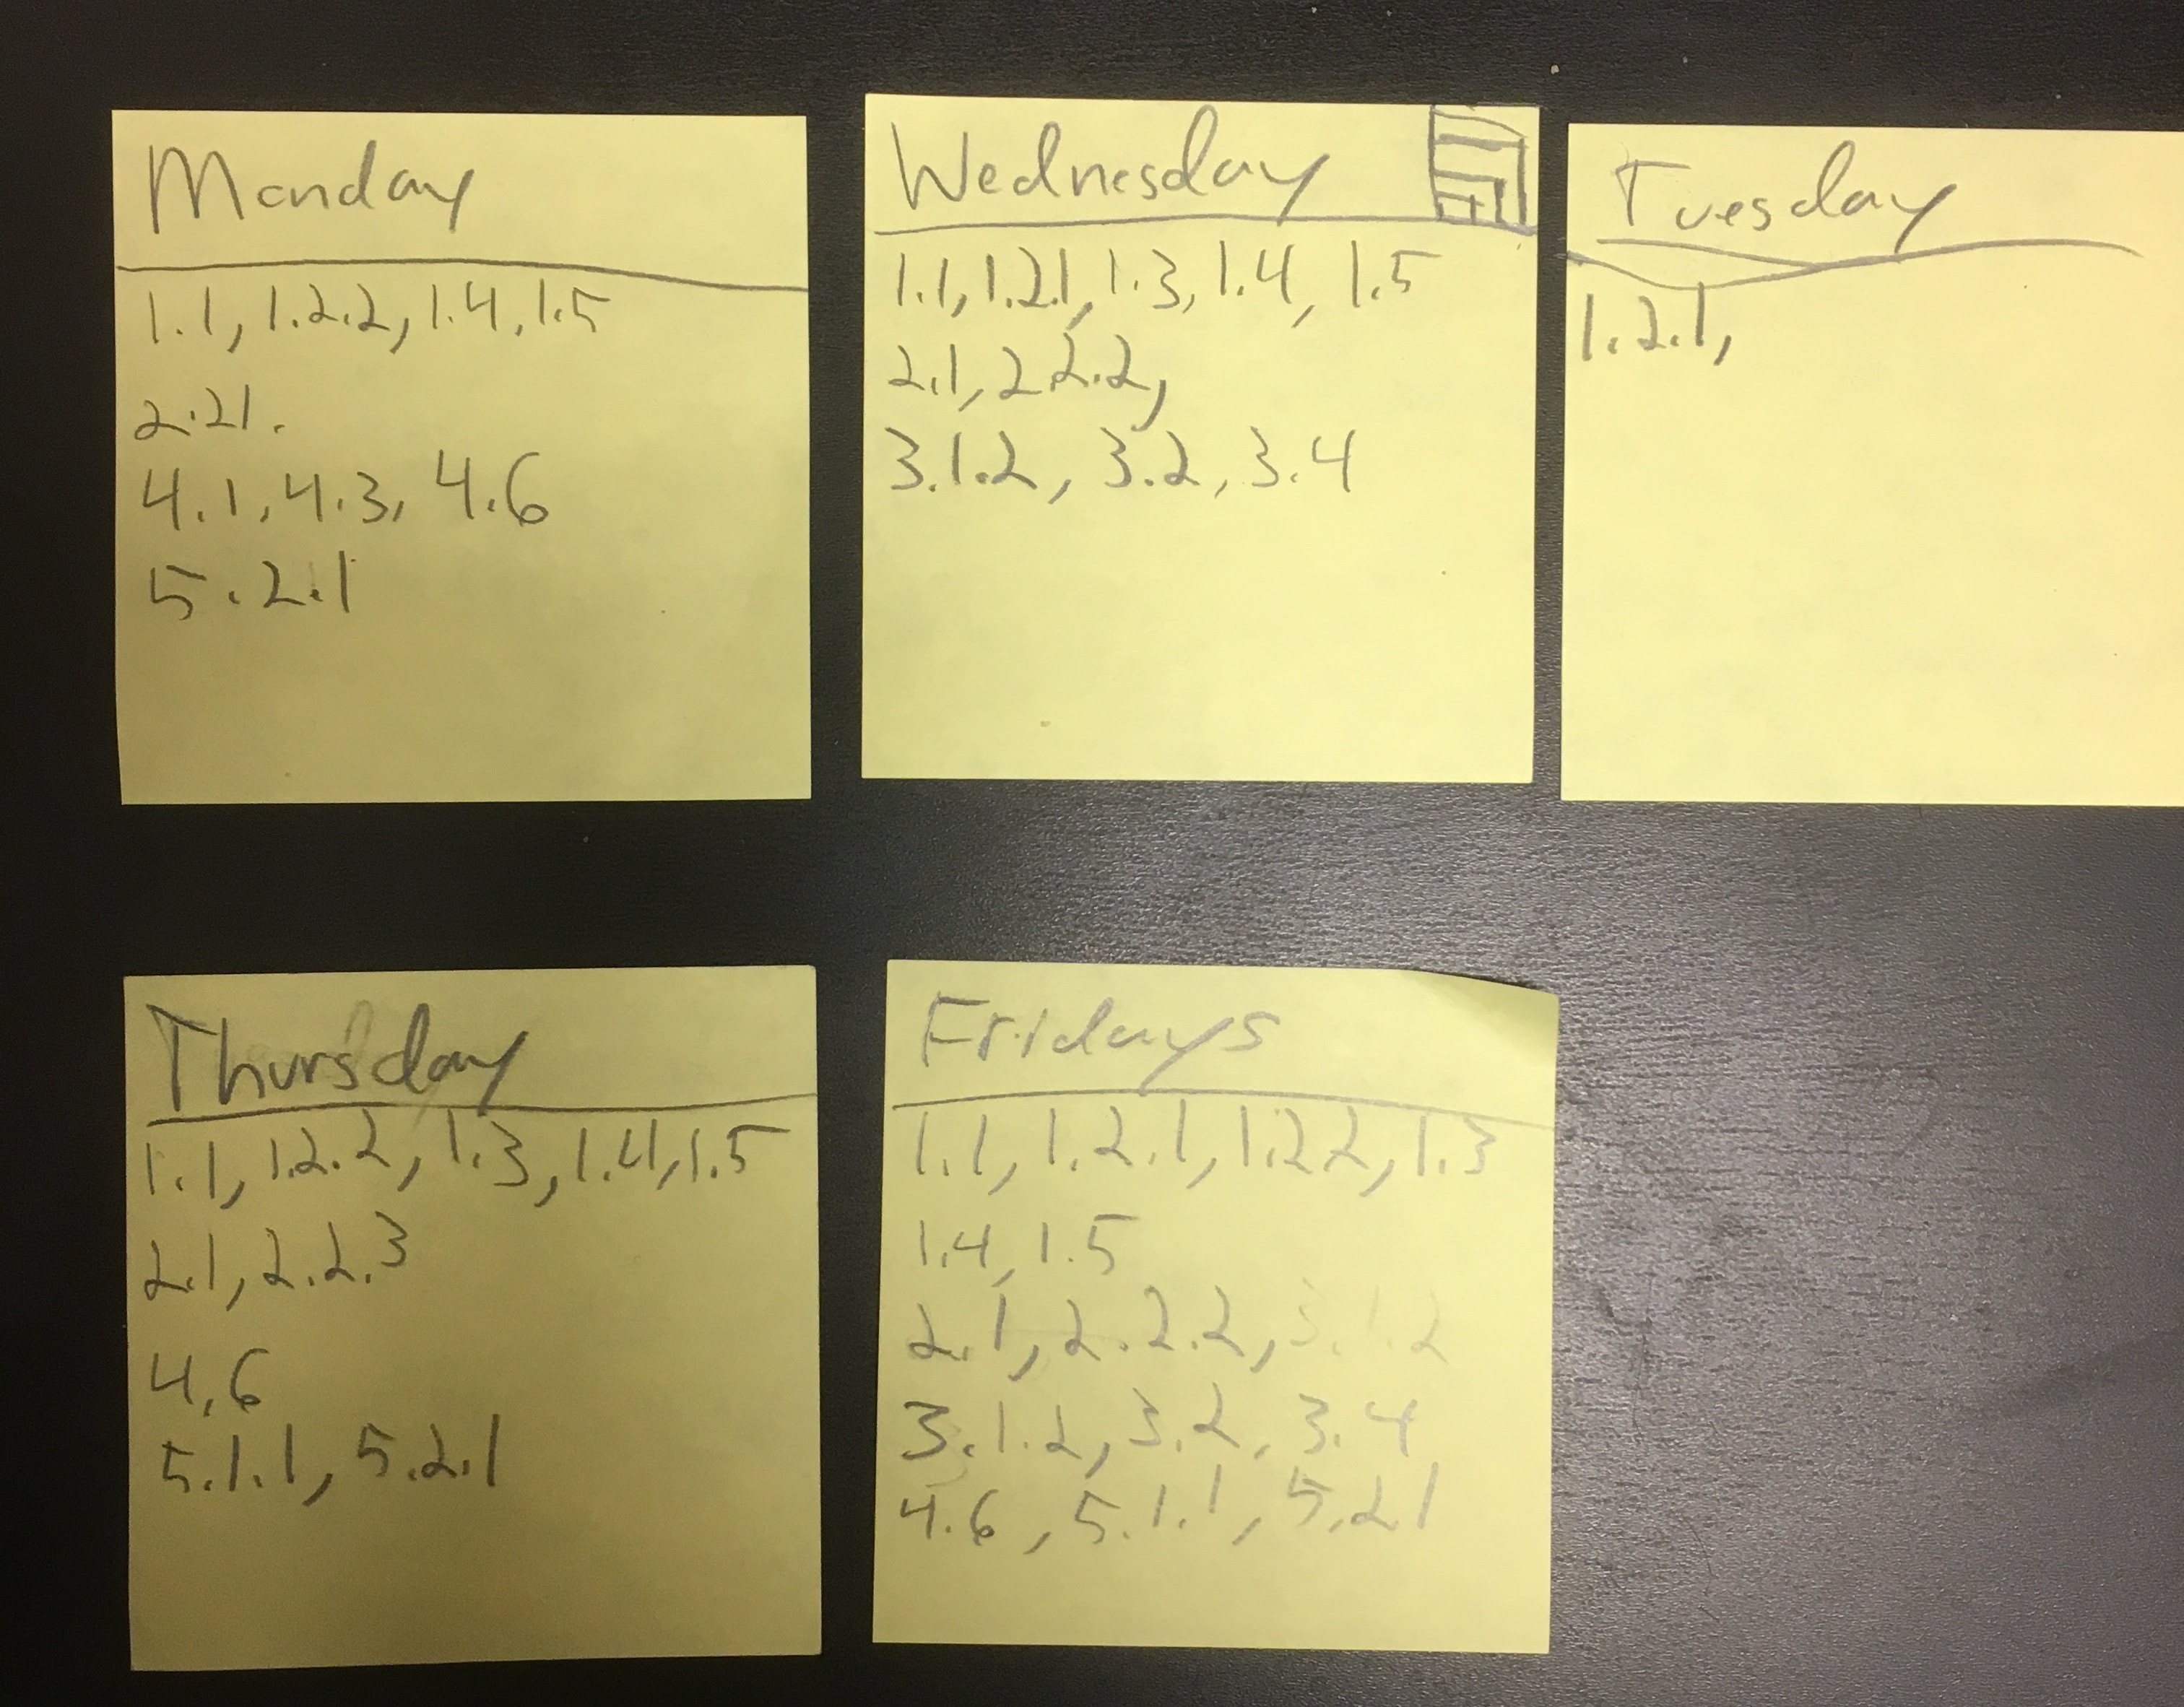 Monday
1.1, 1.2.2, 1.4, 1.5
2.21.
4.1, 4.3, 4.6
5.2.1
Wednesday
1.1, 1.2.1, 1.3, 1.4, 1.5
2.1, 2.2.2,
3.1.2, 3.2, 3.4
Tuesday
1.2.1,
Thursday
1.1, 1.2.2, 1.3, 1.4, 1.5
2.1, 2.2.3
4.6
5.1.1, 5.2.1
Fridays
1.1, 1.2.1, 1.2.2, 1.3
1.4, 1.5
2.1, 2.2.2, 3.1.2
3.1.2, 3.2, 3.4
4.6, 5.1.1, 5.2.1